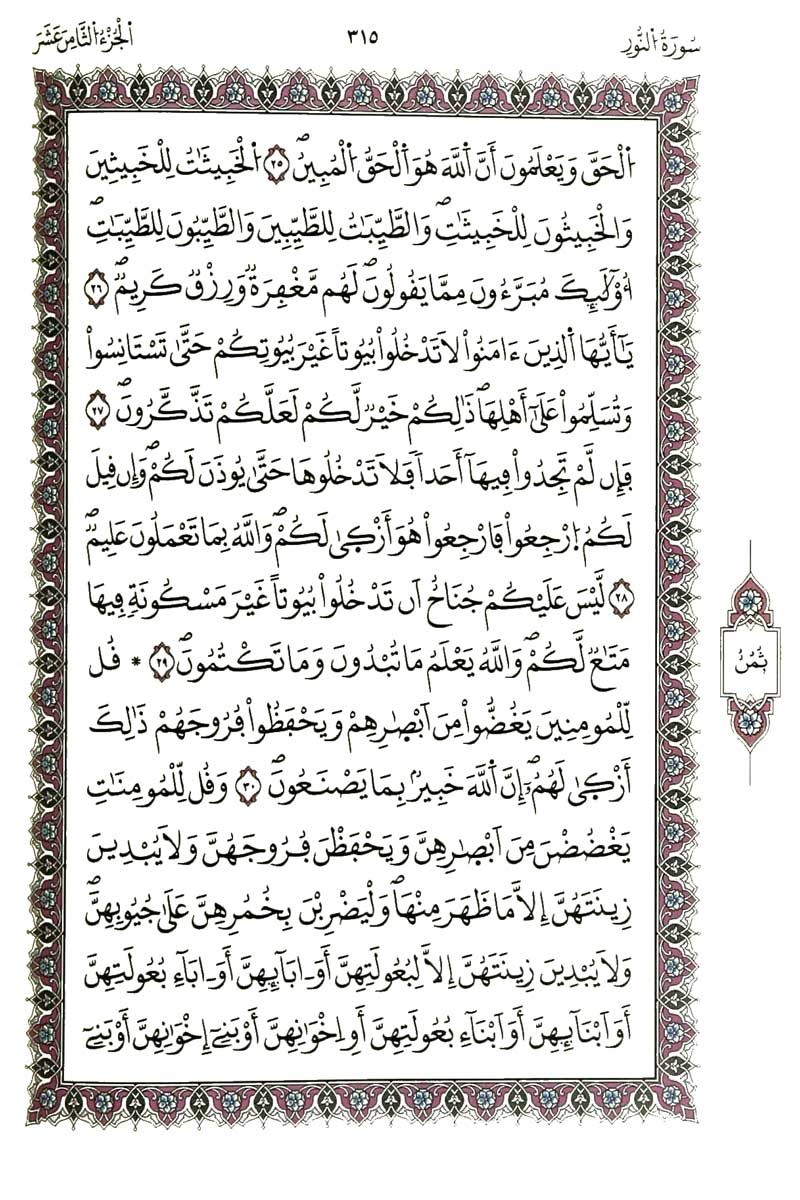 سُورَةُ النُّورِ
٣١٥
الْجُزْءُ الثَّامِنَ عَشَرَ
اَ۬لْحَقَّ وَيَعْلَمُونَ أَنَّ اَ۬للَّهَ هُوَ اَ۬لْحَقُّ اُ۬لْمُبِينُۖ ٢٥ اُ۬لْخَبِيثَٰتُ لِلْخَبِيثِينَ
وَالْخَبِيثُونَ لِلْخَبِيثَٰتِۖ وَالطَّيِّبَٰتُ لِلطَّيِّبِينَ وَالطَّيِّبُونَ لِلطَّيِّبَٰتِۖ
أُوْلَٰٓئِكَ مُبَرَّءُونَ مِمَّا يَقُولُونَۖ لَهُم مَّغْفِرَةٞ وَرِزْقٞ كَرِيمٞۖ ٢٦
يَٰٓأَيُّهَا اَ۬لذِينَ ءَامَنُواْ لَا تَدْخُلُواْ بُيُوتاً غَيْرَ بُيُوتِكُمْ حَتَّىٰ تَسْتَانِسُواْ
وَتُسَلِّمُواْ عَلَىٰٓ أَهْلِهَاۖ ذَٰلِكُمْ خَيْرٞ لَّكُمْ لَعَلَّكُمْ تَذَّكَّرُونَۖ ٢٧
فَإِن لَّمْ تَجِدُواْ فِيهَآ أَحَداٗ فَلَا تَدْخُلُوهَا حَتَّىٰ يُوذَنَ لَكُمْۖ وَإِن قِيلَ
لَكُمُ اُ۪رْجِعُواْ فَارْجِعُواْ هُوَ أَزْكَىٰ لَكُمْۖ وَاللَّهُ بِمَا تَعْمَلُونَ عَلِيمٞۖ
٢٨ لَّيْسَ عَلَيْكُمْ جُنَاحٌ اَن تَدْخُلُواْ بُيُوتاً غَيْرَ مَسْكُونَةٖ فِيهَا
مَتَٰعٞ لَّكُمْۖ وَاللَّهُ يَعْلَمُ مَا تُبْدُونَ وَمَا تَكْتُمُونَۖ ٢٩ * قُل
لِّلْمُومِنِينَ يَغُضُّواْ مِنَ اَبْصٰ۪رِهِمْ وَيَحْفَظُواْ فُرُوجَهُمْ ذَٰلِكَ
أَزْكَىٰ لَهُمُۥٓۖ إِنَّ اَ۬للَّهَ خَبِيرُۢ بِمَا يَصْنَعُونَۖ ٣٠ وَقُل لِّلْمُومِنَٰتِ
يَغْضُضْنَ مِنَ اَبْصٰ۪رِهِنَّ وَيَحْفَظْنَ فُرُوجَهُنَّ وَلَا يُبْدِينَ
زِينَتَهُنَّ إِلَّا مَا ظَهَرَ مِنْهَاۖ وَلْيَضْرِبْنَ بِخُمُرِهِنَّ عَلَىٰ جُيُوبِهِنَّۖ
وَلَا يُبْدِينَ زِينَتَهُنَّ إِلَّا لِبُعُولَتِهِنَّ أَوَ اٰبَآئِهِنَّ أَوَ اٰبَآءِ بُعُولَتِهِنَّ
أَوَ اَبْنَآئِهِنَّ أَوَ اَبْنَآءِ بُعُولَتِهِنَّ أَوِ اِخْوَٰنِهِنَّ أَوْ بَنِےٓ إِخْوَٰنِهِنَّ أَوْ بَنِےٓ
ثُمُنُ